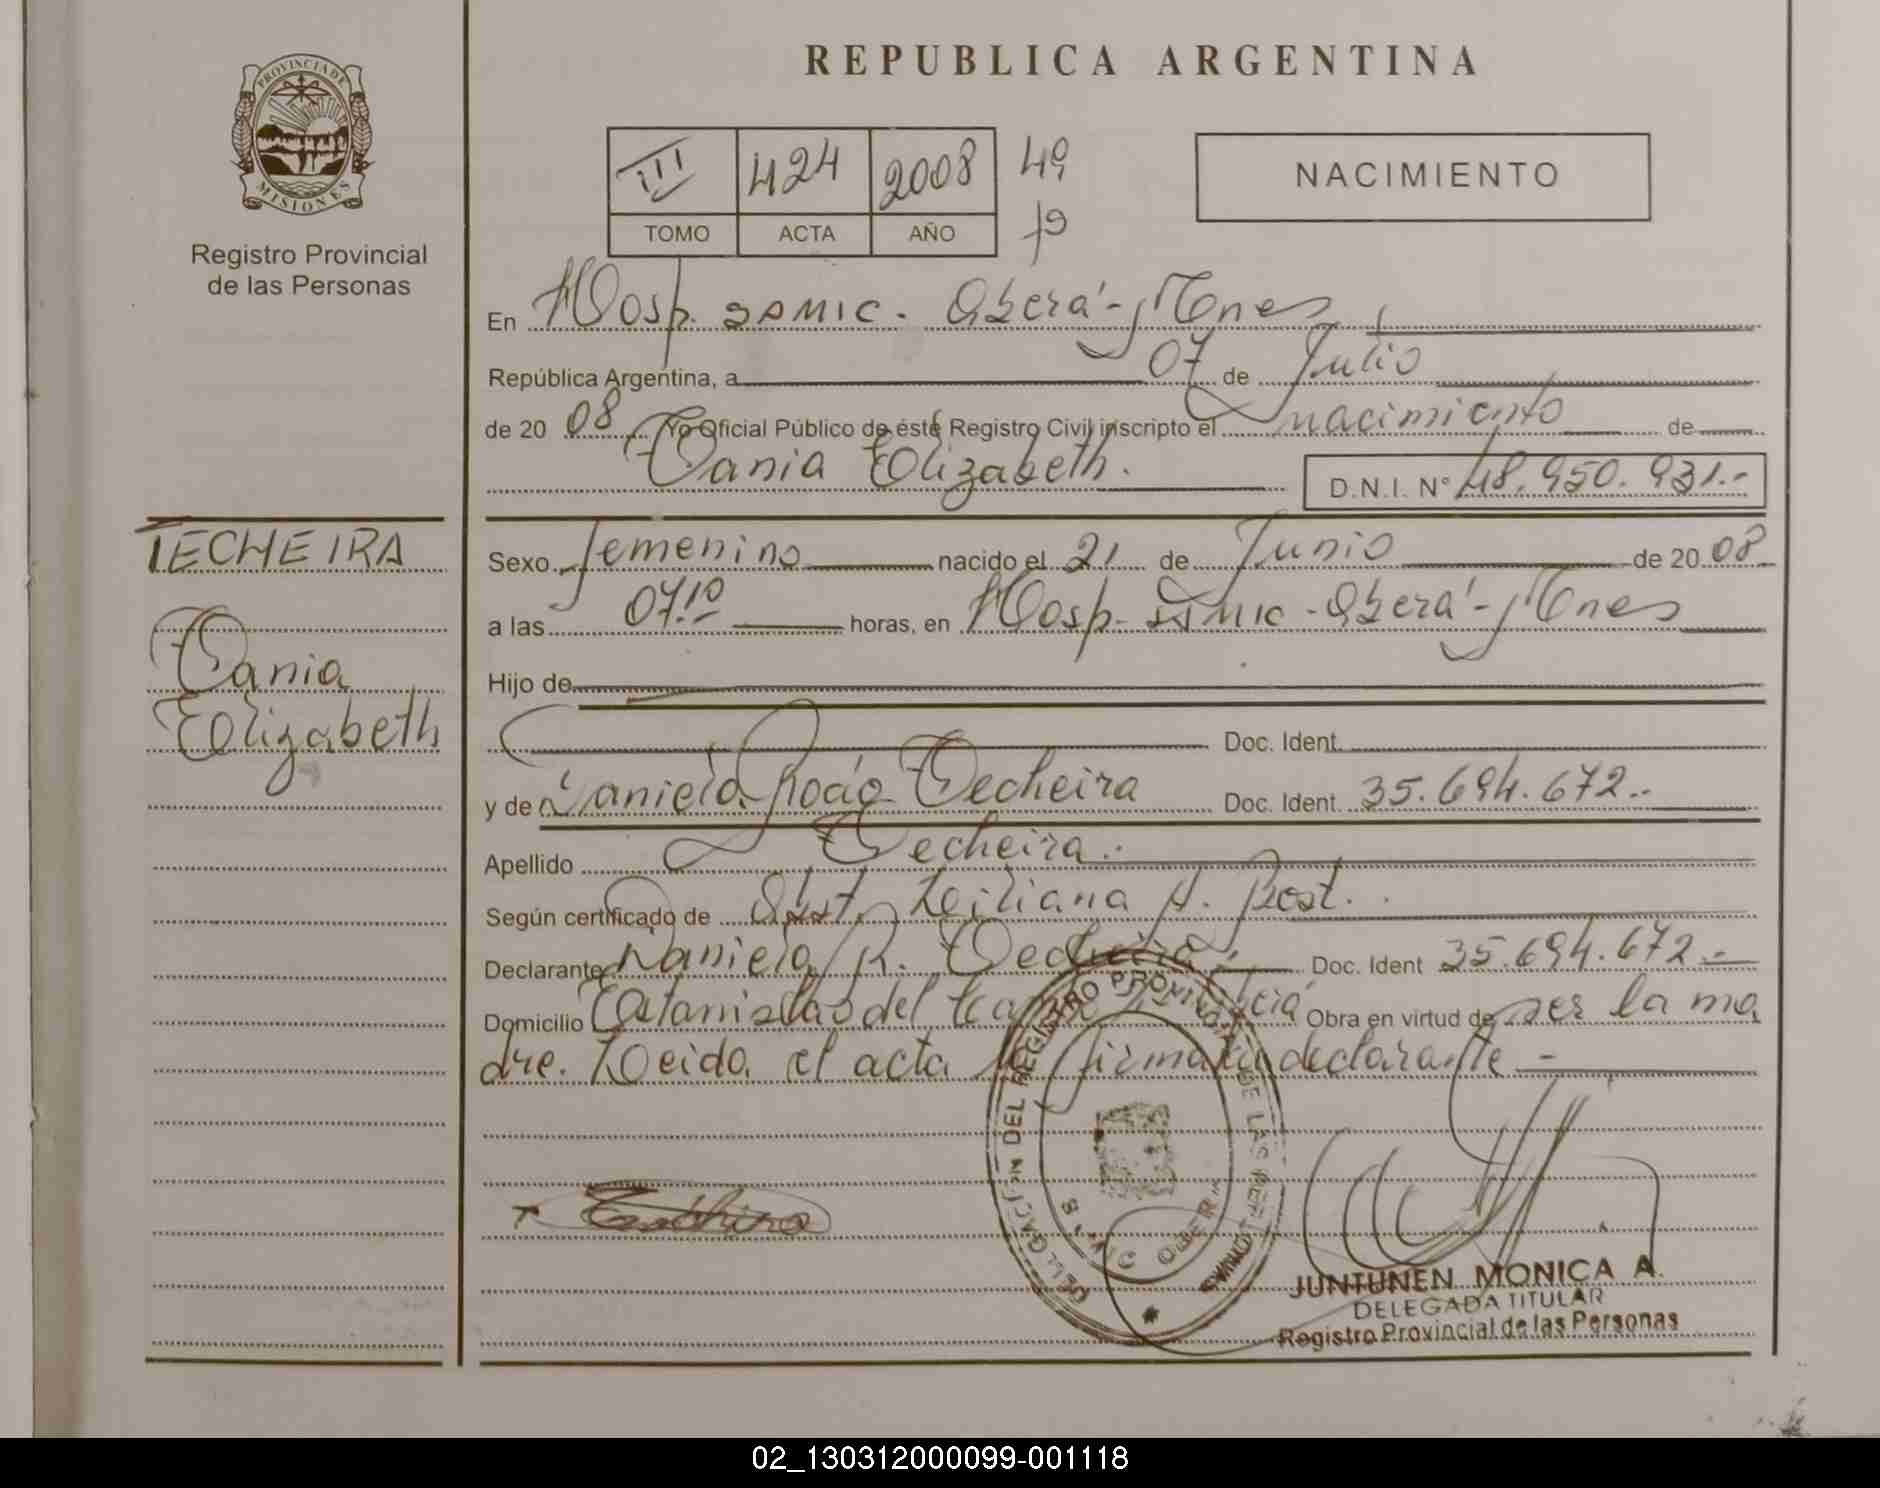 REPUBLICA ARGENTINA
PROVINCIA DE
MISIONES
Registro Provincial
de las Personas
III 424 2008 49
TOMO ACTA AÑO
NACIMIENTO
En Hosp. SAMIC. Oberá - Mnes
República Argentina, a 07 de Julio
de 20 08 Yo Oficial Público de éste Registro Civil inscripto el nacimiento de
Tania Elizabeth. D.N.I. N° 48.950.931.-
TECHEIRA
Tania
Elizabeth
Sexo femenino nacido el 21 de Junio de 20 08
a las 07:10 horas, en Hosp. SAMIC - Oberá - Mnes
Hijo de
Doc. Ident.
y de Daniela Techeira Doc. Ident. 35.694.672.-
Apellido Techeira.-
Según certificado de Obst. Liliana A. Post.
Declarante Daniela R. Techeira Doc. Ident 35.694.672.-
Domicilio Estanislao del Obra en virtud de ser la ma
dre. Leida el acta la firma la declarante -
DELEGACION DEL REGISTRO PROVINCIAL DE LAS PERSONAS
JUNTUNEN MONICA A.
DELEGADA TITULAR
Registro Provincial de las Personas
02_130312000099-001118